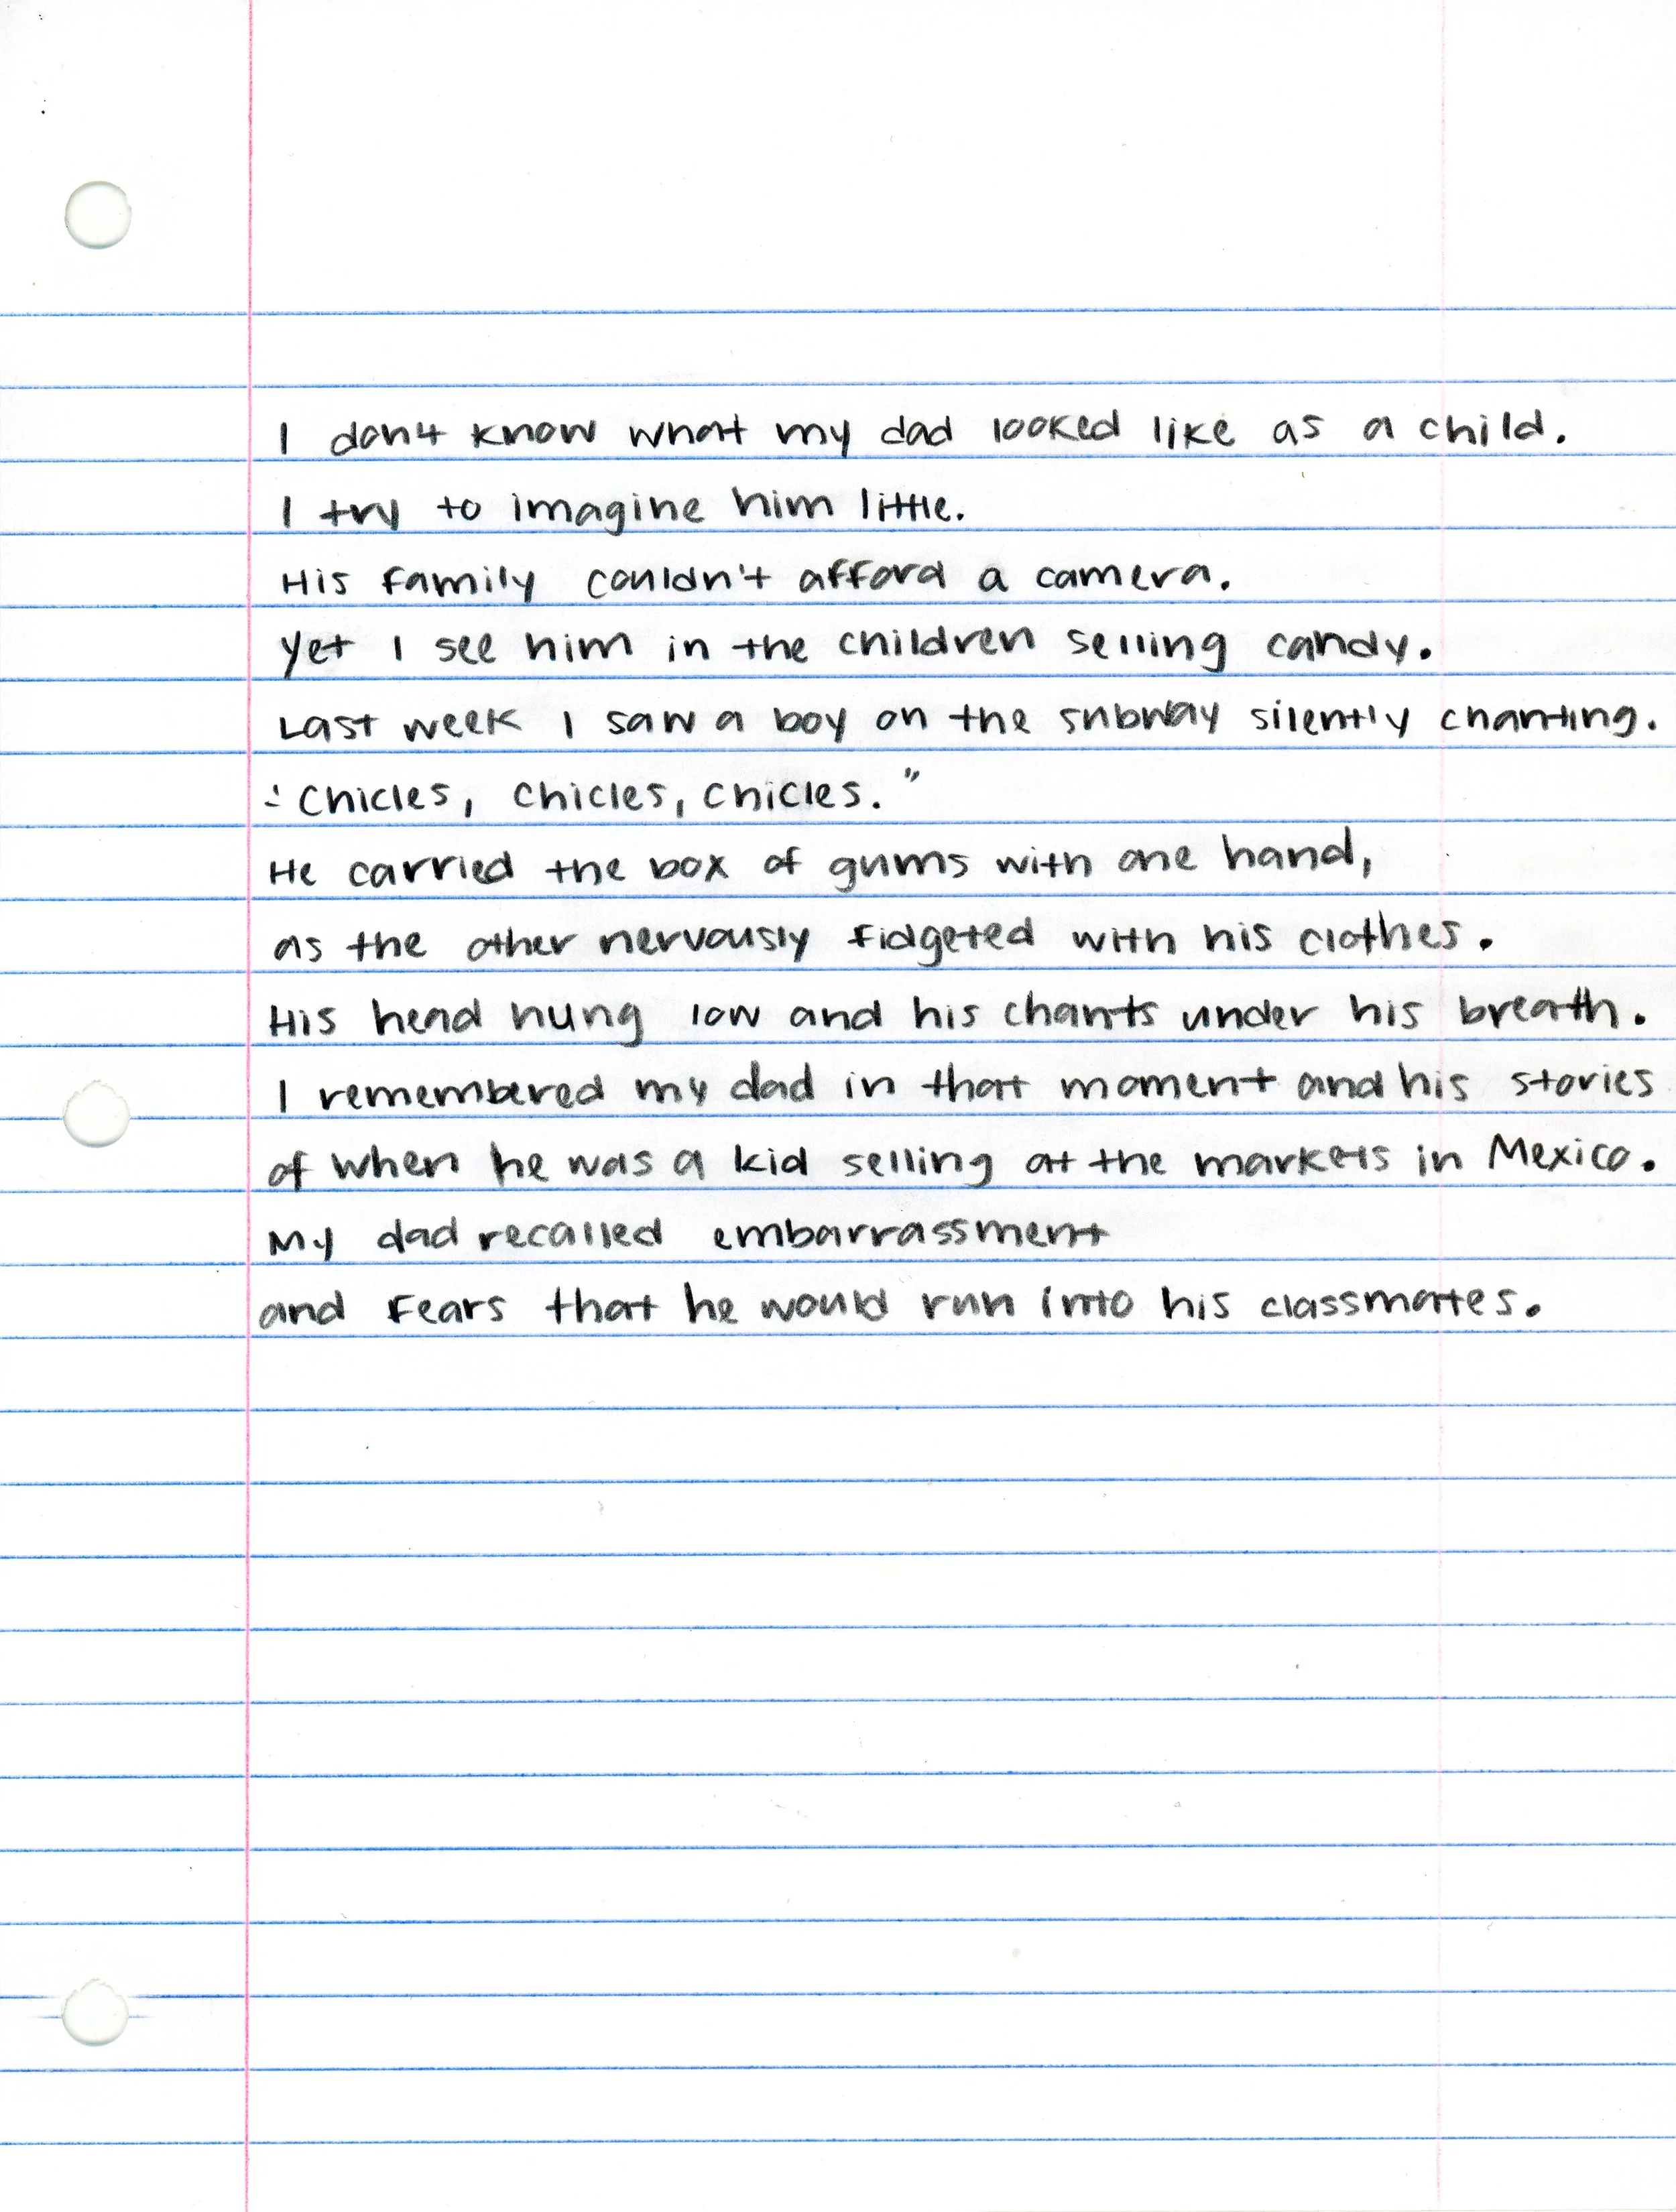 I don't know what my dad looked like as a child.
I try to imagine him little.
His family couldn't afford a camera.
Yet I see him in the children selling candy.
Last week I saw a boy on the subway silently chanting.
"Chicles, chicles, chicles."
He carried the box of gums with one hand,
as the other nervously fidgeted with his clothes.
His head hung low and his chants under his breath.
I remembered my dad in that moment and his stories
of when he was a kid selling at the markets in Mexico.
My dad recalled embarrassment
and fears that he would run into his classmates.